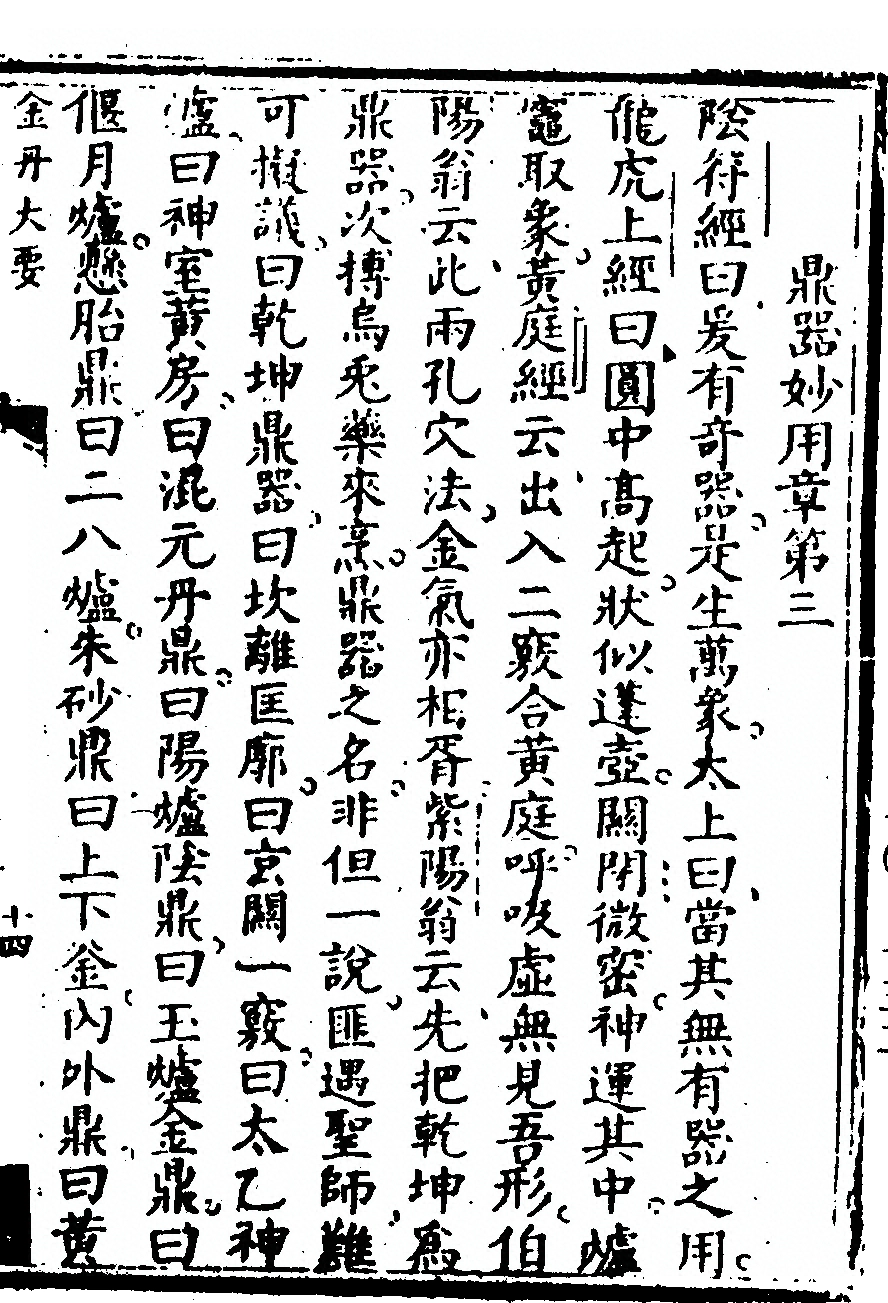 鼎器妙用章第三
陰符經曰爰有竒器是生萬象太上曰當其無有器之用
龍虎上經曰圓中髙起狀似蓬壺關閉微密神運其中爐
竈取象黄庭經云出入二竅合黄庭呼吸虛無見吾形伯
陽翁云此兩孔穴法金氣亦相胥紫陽翁云先把乾坤爲
鼎器次摶烏兎藥來烹鼎器之名非但一說匪遇聖師難
可擬議曰乾坤鼎器曰坎離匡廓曰玄關一竅曰太乙神
爐曰神室黄房曰混元丹鼎曰陽爐陰鼎曰玉爐金鼎曰
偃月爐懸胎鼎曰二八爐朱砂鼎曰上下釜内外鼎曰黄
金丹大要
十四